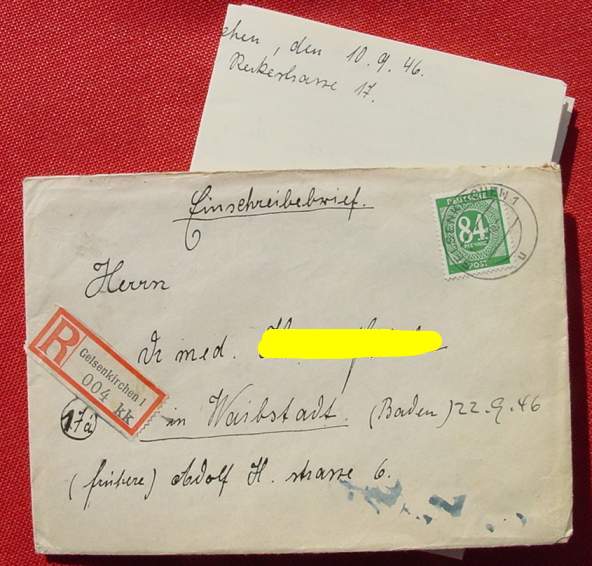 chen, den 10.9.46.
17.
Einschreibebrief.
DEUTSCHE
84
PFENNIG
POST
Herrn
Dr med.
R
Gelsenkirchen 1
004 kk
17a
in Waibstadt. (Baden) 22.9.46
(frühere) Adolf H. strasse 6.